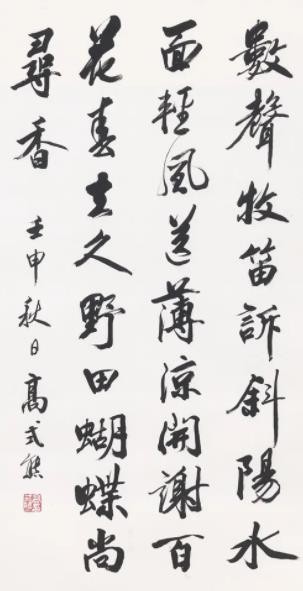 數聲牧笛訴斜陽水
面輕風送薄涼開謝百
花春去久野田蝴蝶尚
尋香
壬申秋日高式熊